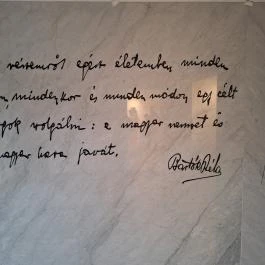 részemről egész életemben minden
minden kor és minden módon egy célt
fogok szolgálni: a magyar nemzet és
magyar haza javát.
Bartók Béla